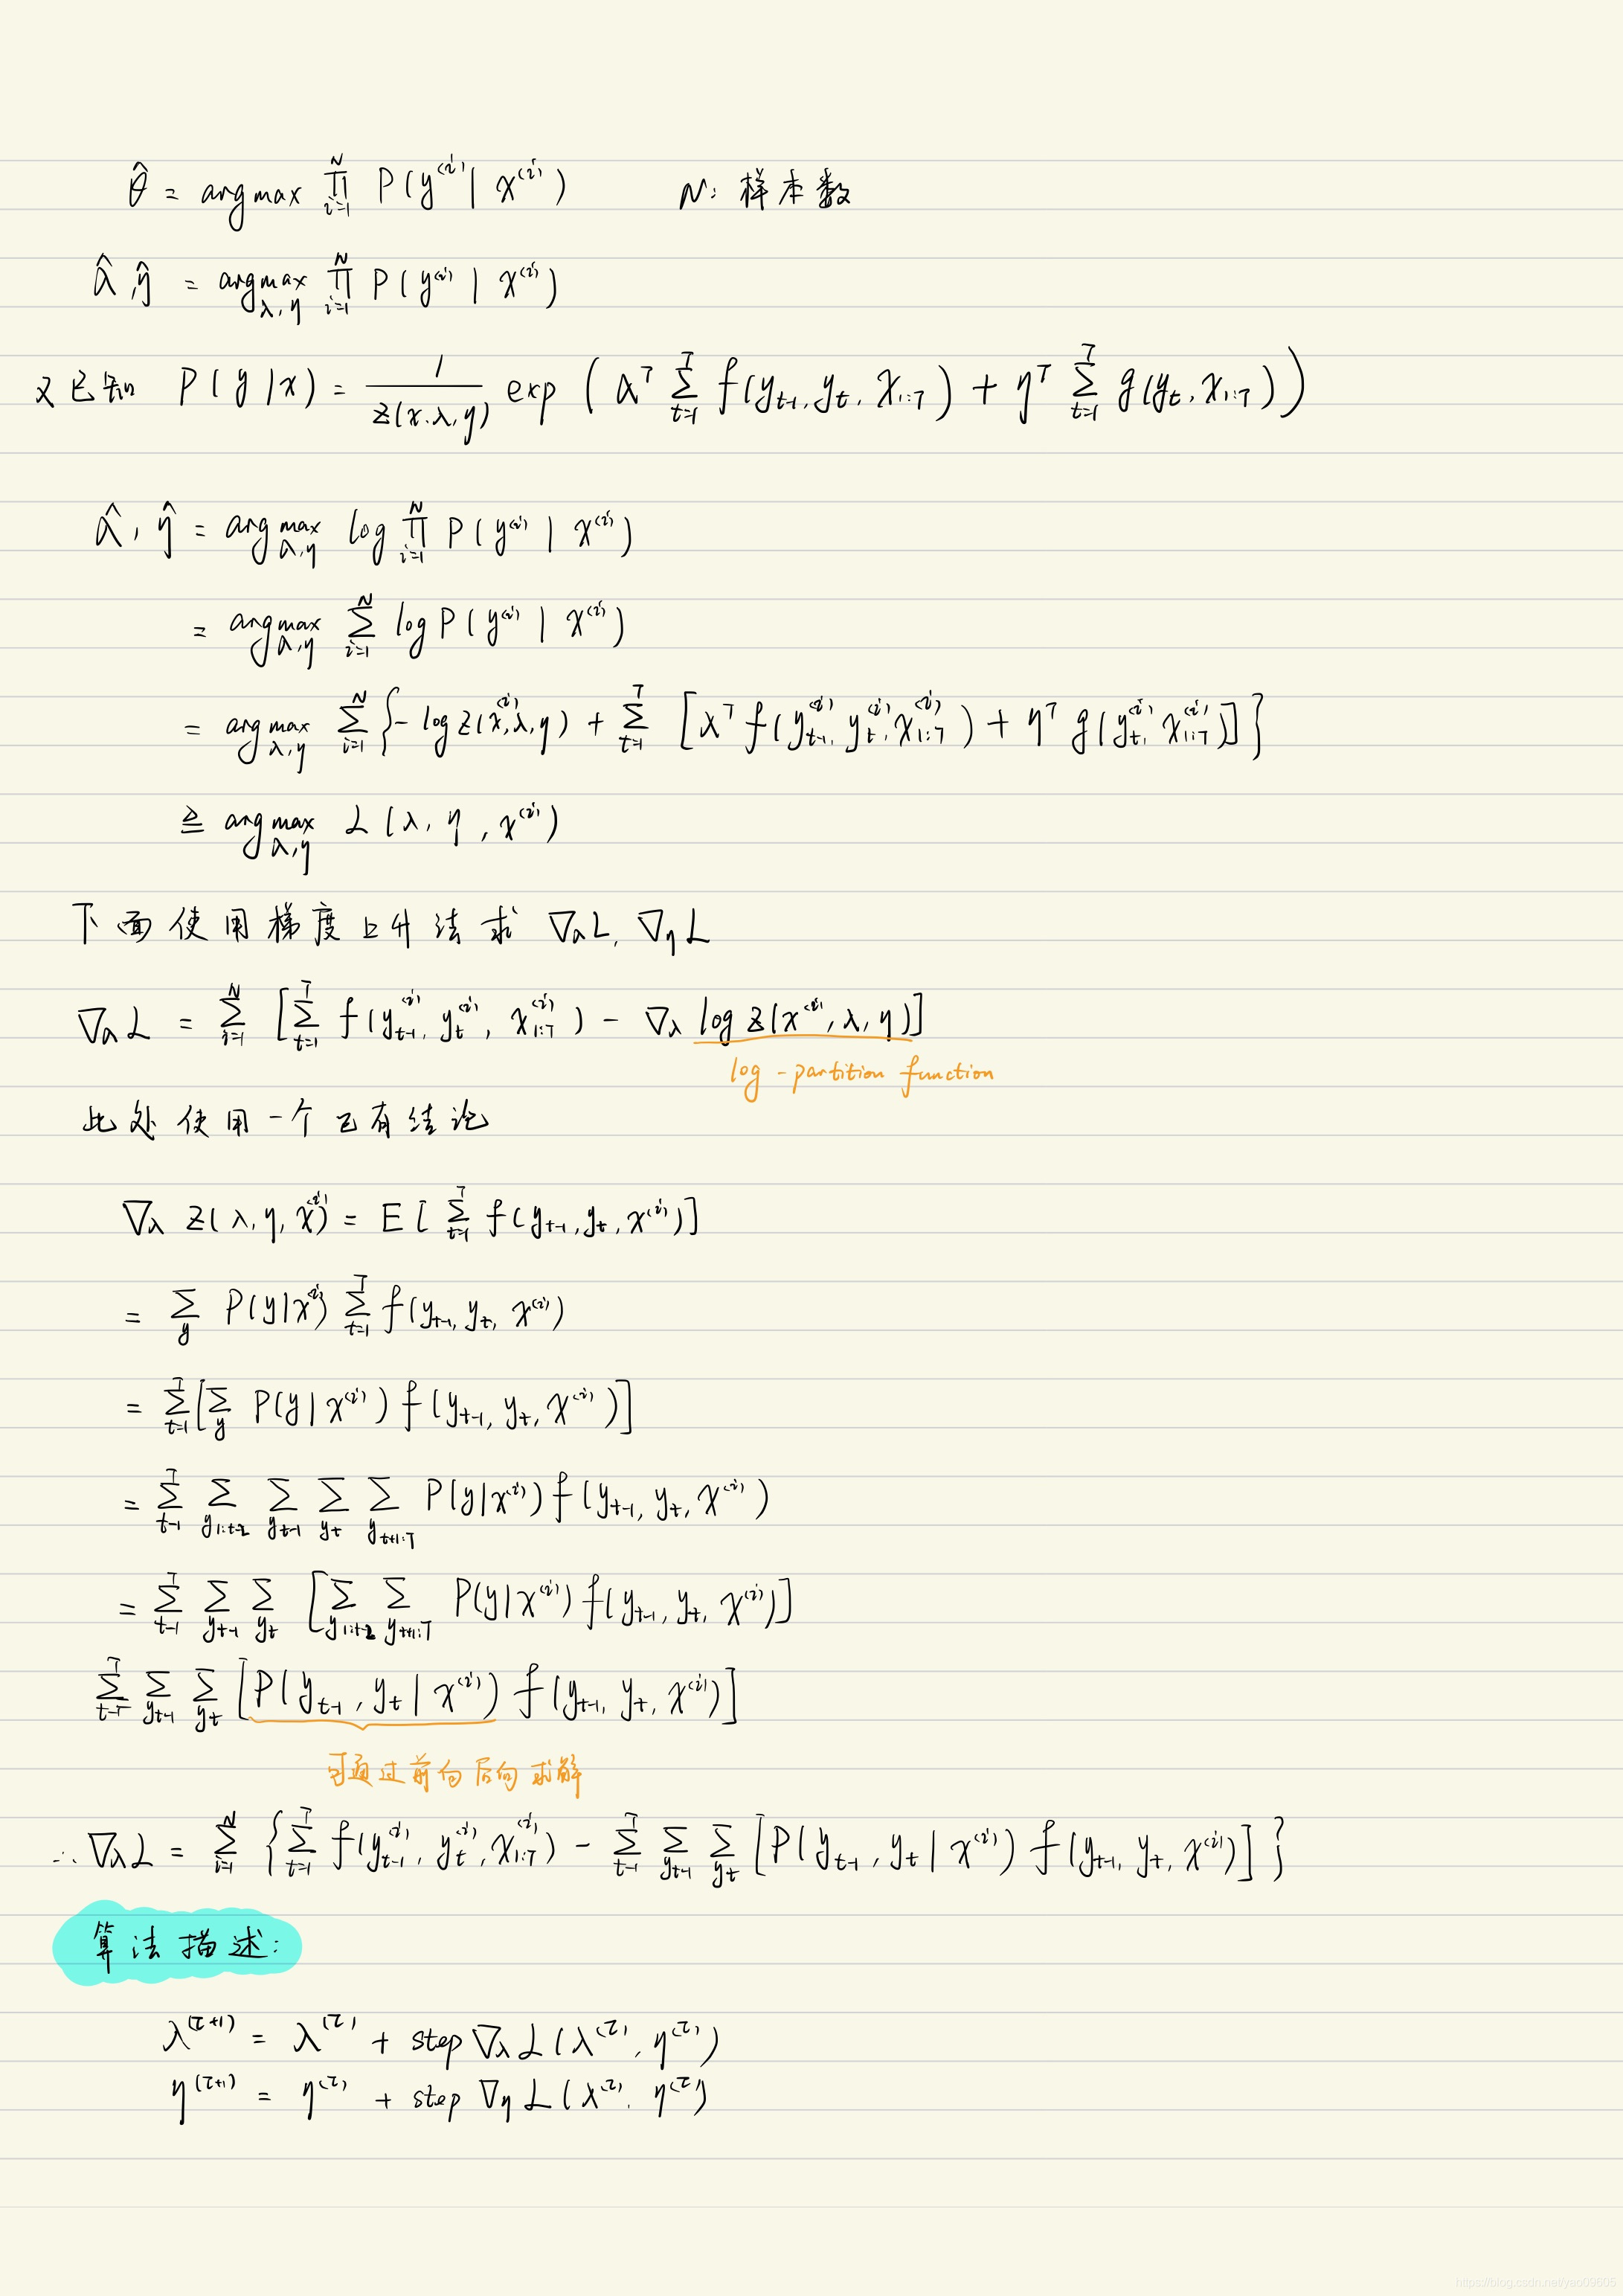 θ̂ = argmax ∏_{i=1}^{N} P(y^{(i)} | x^{(i)}) N: 样本数
λ̂, η̂ = argmax_{λ,η} ∏_{i=1}^{N} P(y^{(i)} | x^{(i)})
又已知 P(y|x) = 1/z(x.λ,η) exp (λ^T ∑_{t=1}^{T} f(y_{t-1}, y_t, x_{1:T}) + η^T ∑_{t=1}^{T} g(y_t, x_{1:T}))
λ̂, η̂ = argmax_{λ,η} log ∏_{i=1}^{N} P(y^{(i)} | x^{(i)})
= argmax_{λ,η} ∑_{i=1}^{N} log P(y^{(i)} | x^{(i)})
= argmax_{λ,η} ∑_{i=1}^{N} {- log z(x^{(i)}, λ, η) + ∑_{t=1}^{T} [λ^T f(y_{t-1}^{(i)}, y_t^{(i)}, x_{1:T}^{(i)}) + η^T g(y_t^{(i)}, x_{1:T}^{(i)})]}
≜ argmax_{λ,η} L(λ, η, x^{(i)})
下面使用梯度上升法求 ∇_λ L, ∇_η L
∇_λ L = ∑_{i=1}^{N} [∑_{t=1}^{T} f(y_{t-1}^{(i)}, y_t^{(i)}, x_{1:T}^{(i)}) - ∇_λ log z(x^{(i)}, λ, η)]
log-partition function
此处使用一个已有结论
∇_λ z(λ, η, x^{(i)}) = E[∑_{t=1}^{T} f(y_{t-1}, y_t, x^{(i)})]
= ∑_y P(y|x^{(i)}) ∑_{t=1}^{T} f(y_{t-1}, y_t, x^{(i)})
= ∑_{t=1}^{T} [∑_y P(y|x^{(i)}) f(y_{t-1}, y_t, x^{(i)})]
= ∑_{t=1}^{T} ∑_{y_{1:t-2}} ∑_{y_{t-1}} ∑_{y_t} ∑_{y_{t+1:T}} P(y|x^{(i)}) f(y_{t-1}, y_t, x^{(i)})
= ∑_{t=1}^{T} ∑_{y_{t-1}} ∑_{y_t} [∑_{y_{1:t-2}} ∑_{y_{t+1:T}} P(y|x^{(i)}) f(y_{t-1}, y_t, x^{(i)})]
∑_{t=1}^{T} ∑_{y_{t-1}} ∑_{y_t} [P(y_{t-1}, y_t | x^{(i)}) f(y_{t-1}, y_t, x^{(i)})]
可通过前向后向求解
∴ ∇_λ L = ∑_{i=1}^{N} {∑_{t=1}^{T} f(y_{t-1}^{(i)}, y_t^{(i)}, x_{1:T}^{(i)}) - ∑_{t=1}^{T} ∑_{y_{t-1}} ∑_{y_t} [P(y_{t-1}, y_t | x^{(i)}) f(y_{t-1}, y_t, x^{(i)})]}
算法描述:
λ^{(τ+1)} = λ^{(τ)} + step ∇_λ L(λ^{(τ)}, η^{(τ)})
η^{(τ+1)} = η^{(τ)} + step ∇_η L(λ^{(τ)}, η^{(τ)})
https://blog.csdn.net/yao09605